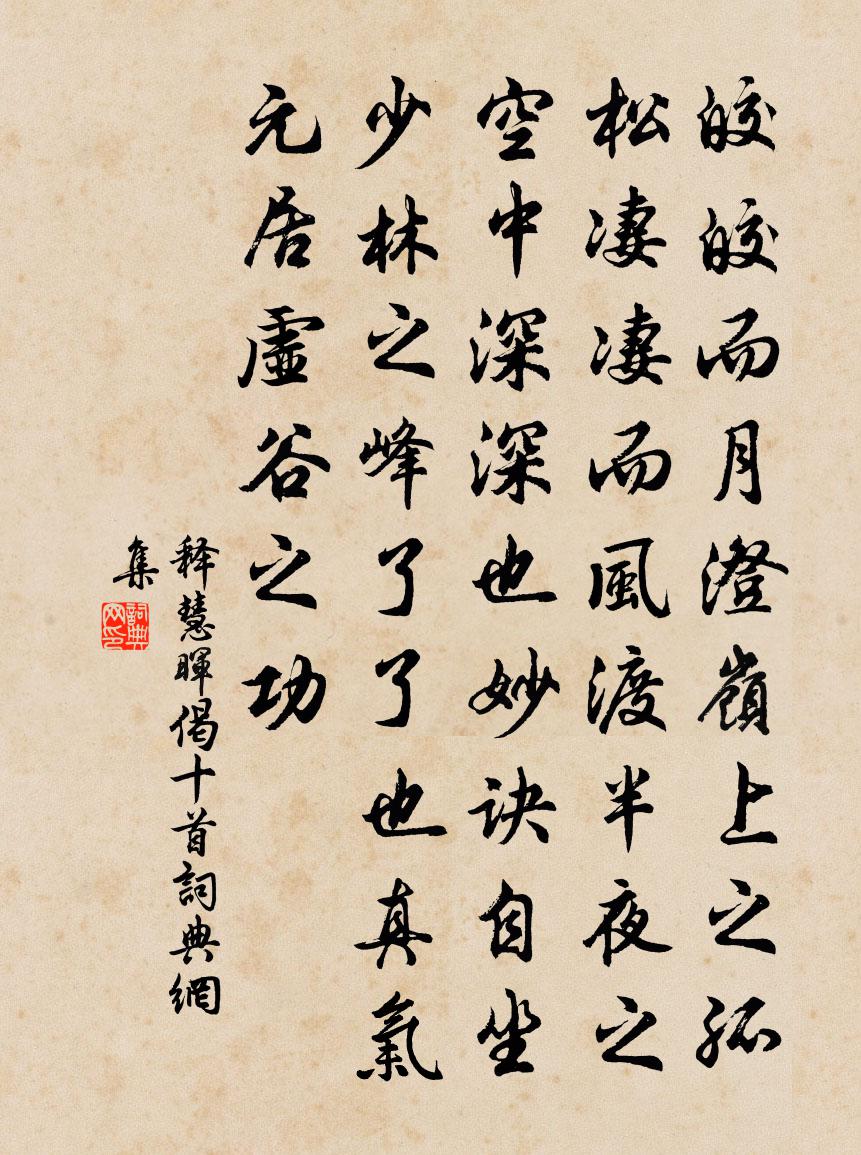 皎皎而月澄嶺上之孤
松凄凄而風渡半夜之
空中深深也妙訣自坐
少林之峰了了也真氣
元居虛谷之功
释慧暉偈十首詞典網
集
詞典
网印